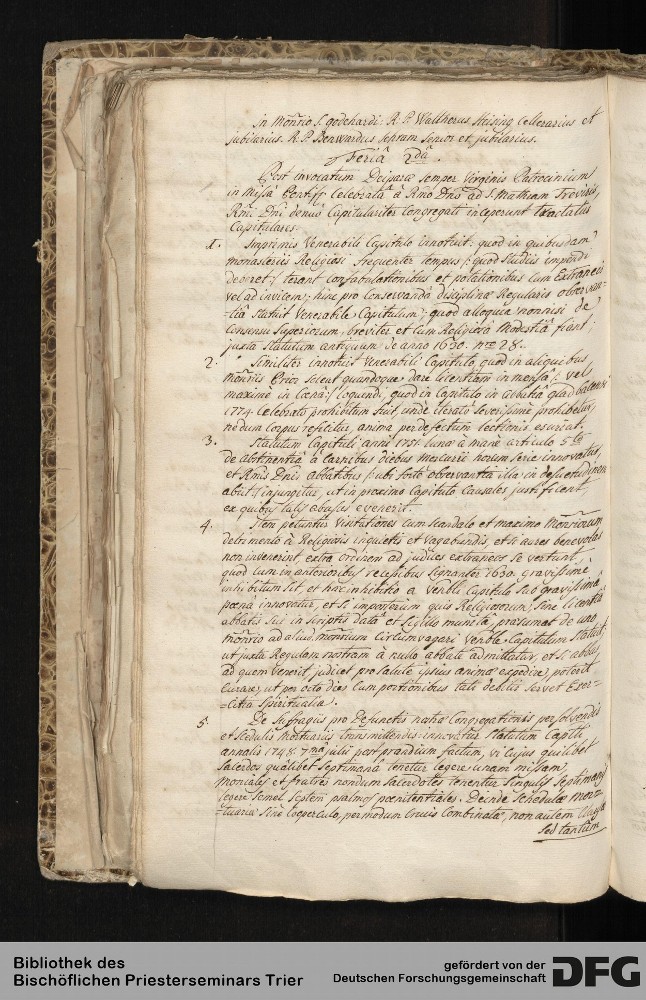 In Monrio S. godehardi: R. P. Waltherus Heising Cellerarius et
jubilarius. R. P. Berwardus Schram Senior et jubilarius.
Feriâ 2dâ.
Post invocatum Deiparæ semper Virginis Patrocinium
in Missâ Pontif: Celebratâ â Rmo Dno ad S. Mathiam Treviris,
Rmi Dni denuò Capitulariter Congregati inceperunt tractatus
Capitulares.
1. Imprimis Venerabili Capitulo innotuit: quod in quibusdam
monasteriis Religiosi frequenter tempus /: quod studiis impendi
deceret :/ terant confabulationibus et potationibus cum Extraneis
vel ad invicem; hinc pro Conservandâ disciplinâ Regularis observan-
=tiâ statuit Venerabile Capitulum; quod alloquia nonnisi de
Consensu Superiorum, breviter et cum Religiosâ modestiâ fiant;
juxta Statutum antiquum de anno 1630. nro 28.
2. Similiter innotuit Venerabili Capitulo, quod in aliquibus
Monriis Prior soleat quandoque dare licentiam in mensâ /: vel
maximè in Cœnâ :/ loquendi, quod in Capitulo in abbatiâ
1774. Celebrato prohibitum fuit, unde iterato severissimè prohibetur,
ne dum Corpus reficitur, anima per defectum lectionis esuriat.
3. Statutum Capituli anni 1751. lunæ â mane articulo 5to
de abstinentiâ â Carnibus diebus Mercurii novum seriè innovatur,
et Rmis Dnis abbatibus /: ubi fortè observantia illa in desuetudinem
abiit :/ injungitur, ut in proximo Capitulo Causales justificent,
ex quibus talis abusus evenerit.
4. Item petuntur Visitationes cum scandalo et maximo Monriorum
detrimento â Religiosis inquietis et vagabundis, et si aures benevolas
non invenerint, extra Ordinem ad judices extraneos se vertunt,
quod cum in anterioribus recessibus signanter 1630. gravissimè
inhibitum sit, et hæc inhibitio a Venbli Capitulo sub gravissimâ
pœnâ innovetur, et si imposterum quis Religiosorum, sine licentiâ
abbatis sui in scriptis datâ et sigillo munitâ, præsumat de uno
monrio ad alius monrium Circumvagari Venble Capitulum statuit,
ut juxta Regulam nostram â nullo abbate admittatur, et si abbas,
ad quem venerit, judicet pro salute ipsius animæ expedire, poterit
Curare, ut per octo dies cum portionibus tali debitis servet Exer-
=citia spiritualia.
5. De Sufragiis pro Defunctis nostræ Congregationis persolvendis
et schedulis Mortuariis transmittendis innovatur Statutum Capitli
annalis 1748. 7mâ julii post prandium factum, vi cujus quilibet
Sacerdos quâlibet Septimanâ tenetur legere unam missam,
Moniales et fratres nondum sacerdotes tenentur singulis septimanis
legere semel septem psalmos pœnitentiales. Deinde Schedulæ mor-
=tuariæ sine Cooperculo, per modum Crucis Combinatæ, non autem
sed tantùm
Bibliothek des
Bischöflichen Priesterseminars Trier
gefördert von der
Deutschen Forschungsgemeinschaft
DFG